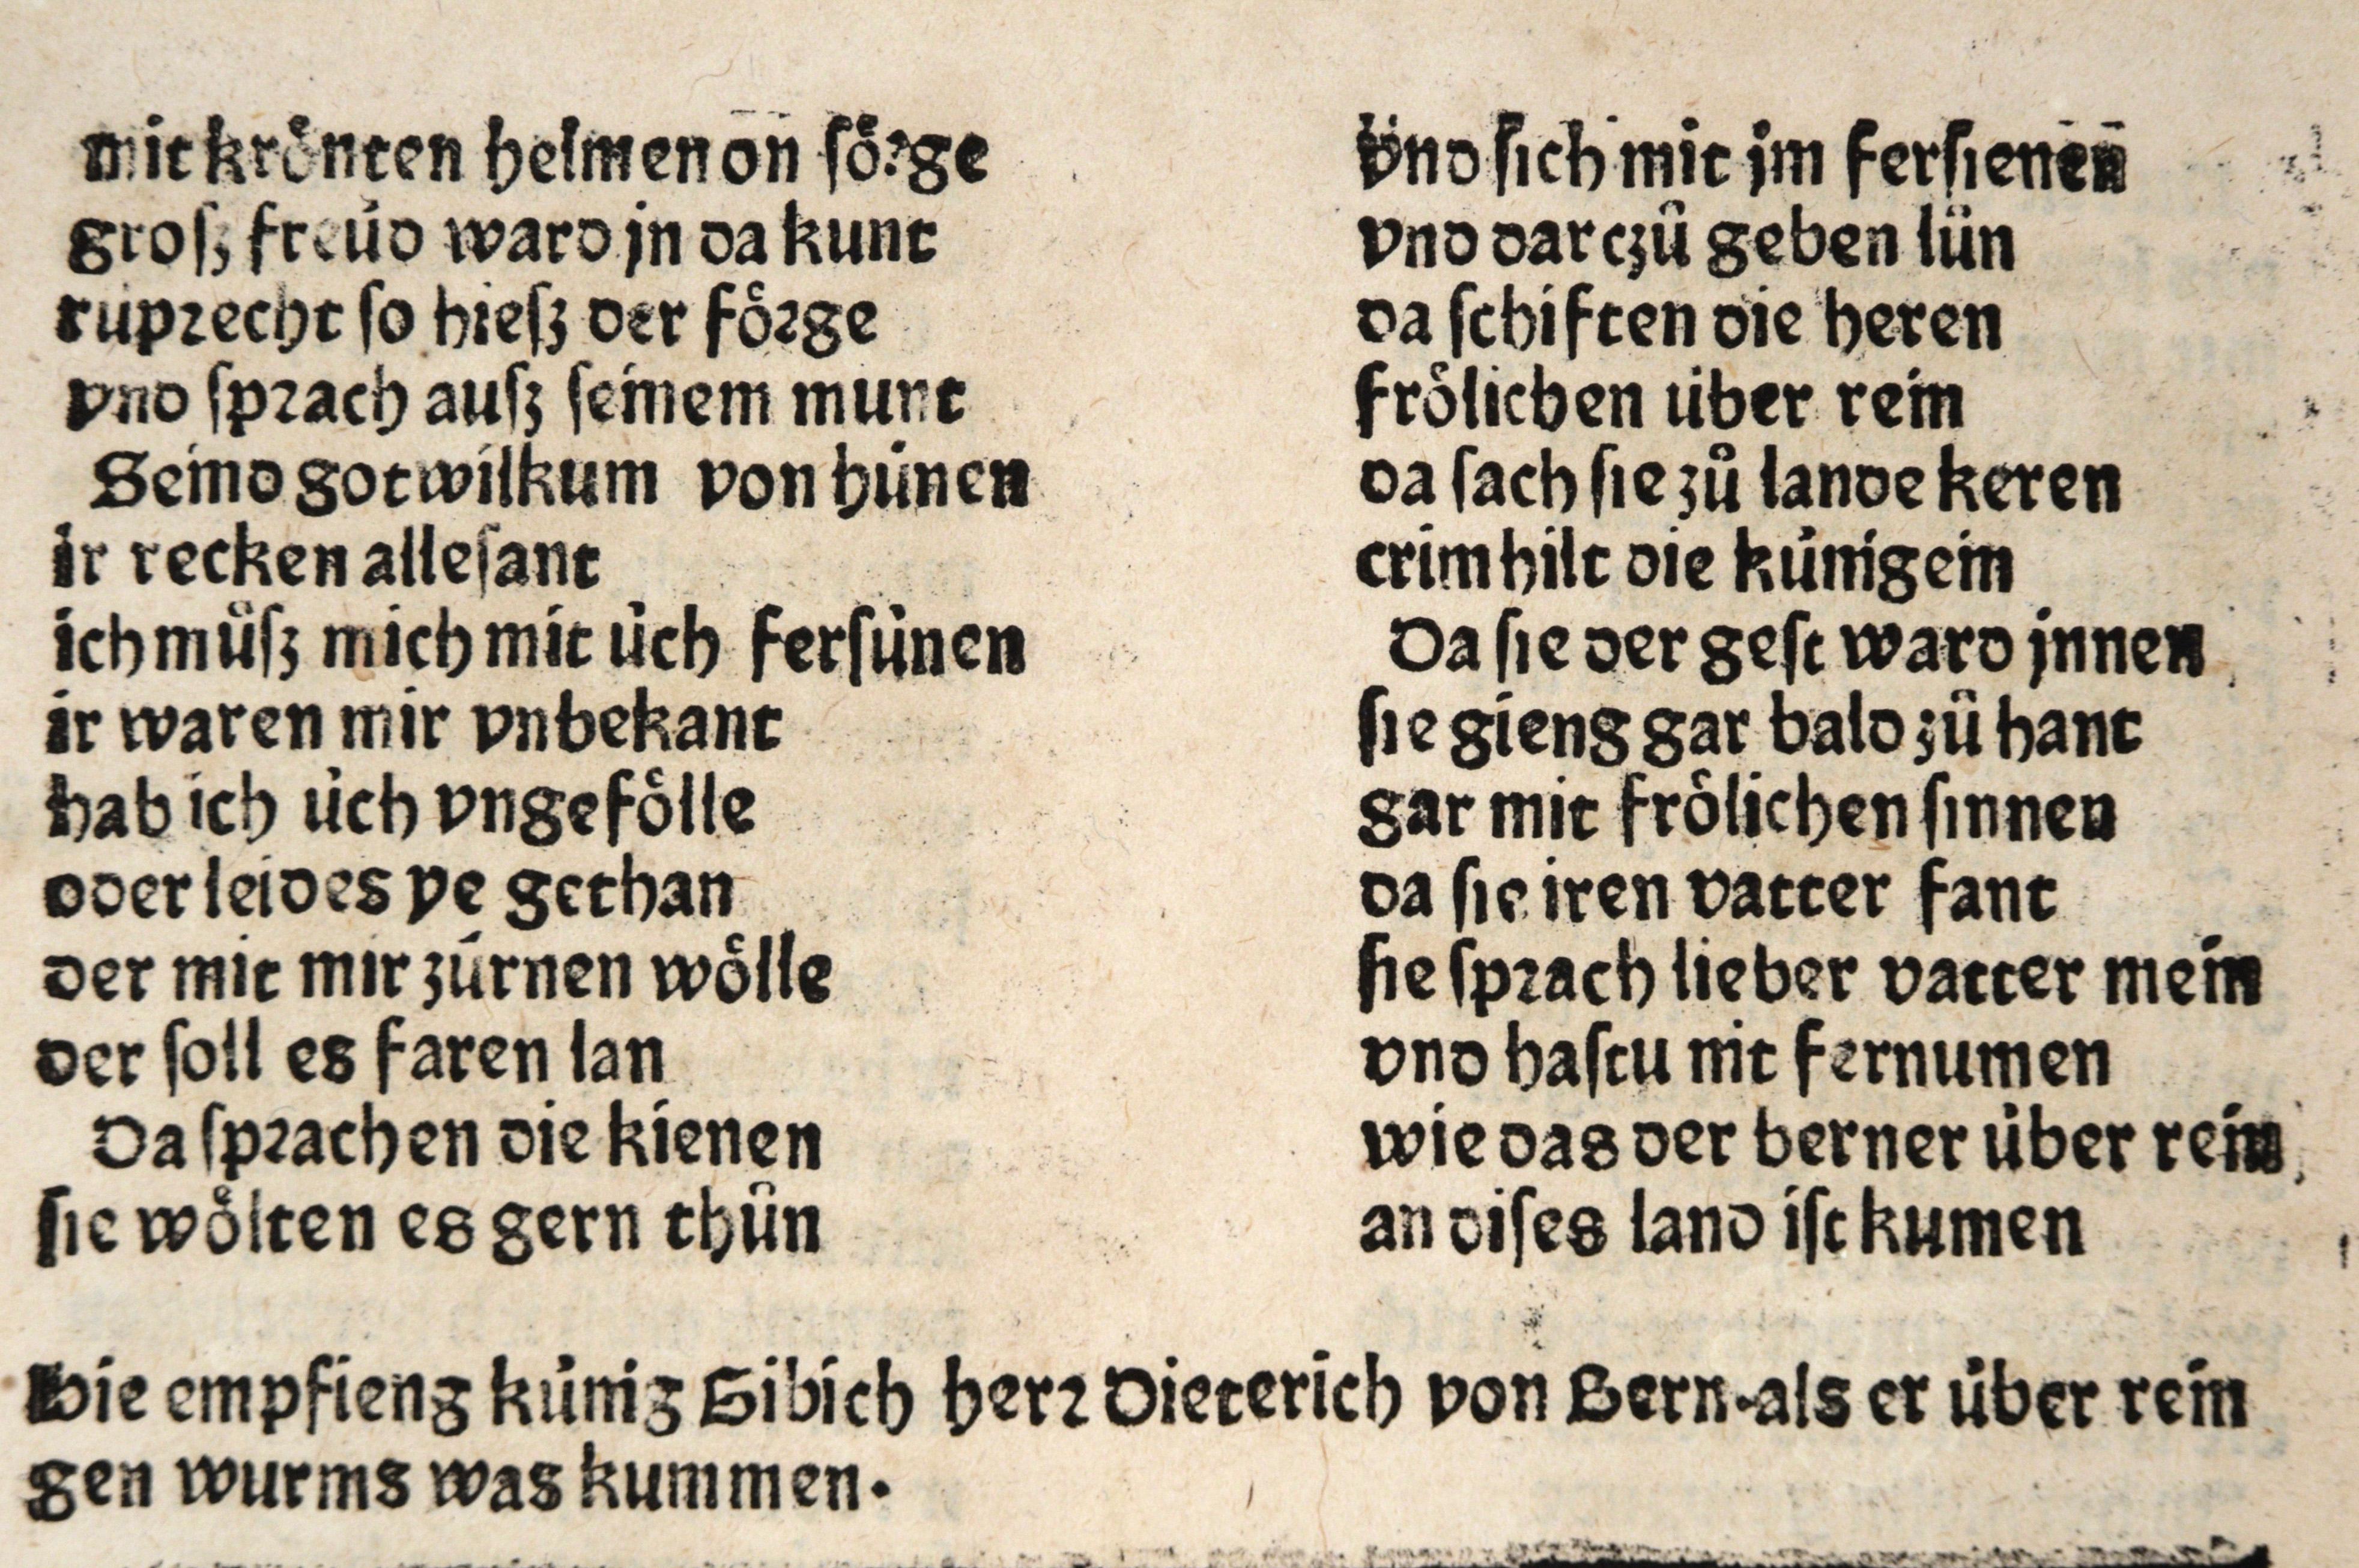 mit krönten helmen on sörge
groſz freüd ward jn da kunt
ruprecht so hieſz der förge
vnd ſprach auſz ſeinem munt
Seind got wilkum von hünen
ir recken alleſant
ich müſz mich mit üch ferſünen
ir waren mir vnbekant
hab ich üch vngefölle
oder leides ye gethan
der mit mir zürnen wölle
der ſoll es faren lan
Da ſprachen die kienen
ſie wölten es gern thün
Vnd ſich mit jm ferſienen
vnd darczü geben lün
da ſchiften die heren
frölichen über rein
da ſach ſie zů lande keren
crimhilt die künigein
Da ſie der geſt ward jnnen
ſie gieng gar bald zü hant
gar mit frölichen ſinnen
da ſie iren vatter fant
ſie ſprach lieber vatter mein
vnd haſtu nit fernumen
wie das der berner über rein
an diſes land iſt kumen
Hie empfieng künig Gibich herr Dieterich von Bern·als er über rein
gen wurms was kummen.